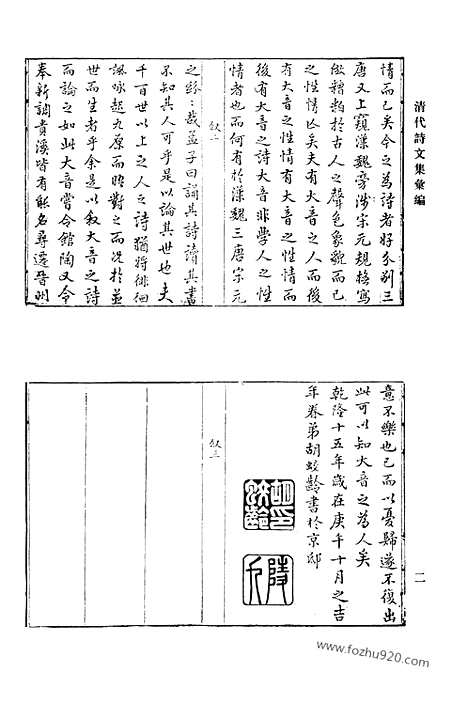 清代詩文集彙編
情而已矣今之為詩者好分別三
唐又上窺漢魏旁涉宋元規橅寫
倣糟粕於古人之聲色象貌而已
之性情亡矣夫有大音之人而後
有大音之性情有大音之性情而
後有大音之詩大音非學人之性
情者也而何有於漢魏三唐宋元
叙二
之紛哉孟子曰誦其詩讀其書
不知其人可乎是以論其世也夫
千百世以上之人之詩猶將徘徊
諷咏起九原而晤對之而況於並
世而生者乎余是以叙大音之詩
而論之如此大音嘗令館陶又令
奉新調貴溪皆有能名尋遷晉州
意不樂也已而以憂歸遂不復出
此可以知大音之為人矣
乾隆十五年歲在庚午十月之吉
年眷弟胡蛟齡書於京邸
胡印蛟齡
叙三
二
www.fozhu920.com